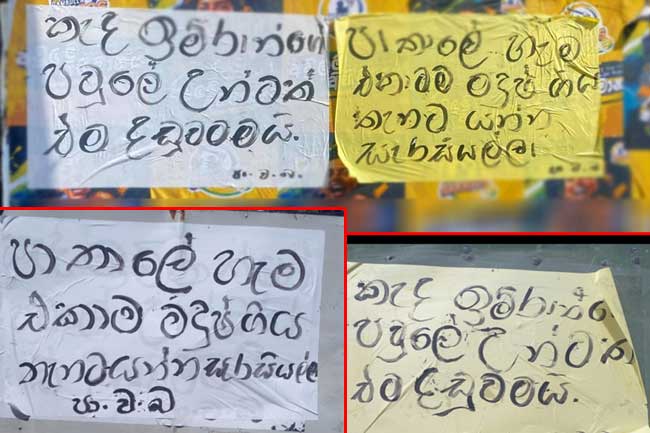 කැද ඉම්රාන්ගේ
පවුලේ උන්ටත්
එම දඩුවමමයි.
පා.ව.බ.
පාතාලේ හැම
එකාමම මදුෂ් ගිය
තැනට යන්න
සැරසියල්ලා
පා.ව.බ
පාතාලේ හැම
එකාම මදුෂ් ගිය
තැනට යන්න සැරසියල්ලා
පා.ව.බ
කැද ඉම්රාන්ගේ
පවුලේ උන්ටත්
එම දඩුවමමයි.